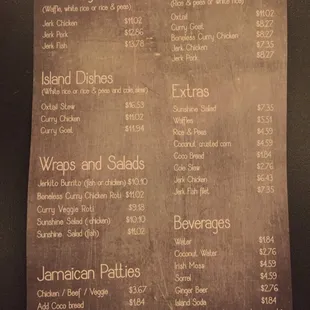 (Waffle, white rice or rice & peas)
Jerk Chicken $11.02
Jerk Pork $12.86
Jerk Fish $13.78
Island Dishes
(White rice or rice & peas and cole slaw)
Oxtail Stew $16.53
Curry Chicken $11.02
Curry Goat $11.94
Wraps and Salads
Jerkito Burrito (fish or chicken) $10.10
Boneless Curry Chicken Roti $11.02
Curry Veggie Roti $9.18
Sunshine Salad (chicken) $10.10
Sunshine Salad (fish) $11.02
Jamaican Patties
Chicken / Beef / Veggie $3.67
Add Coco bread $1.84
(Rice & peas or white rice)
Oxtail $11.02
Curry Goat $8.27
Boneless Curry Chicken $8.27
Jerk Chicken $7.35
Jerk Pork $8.27
Extras
Sunshine Salad $7.35
Waffles $5.51
Rice & Peas $4.59
Coconut crusted corn $4.59
Coco Bread $1.84
Cole Slaw $2.76
Jerk Chicken $6.43
Jerk Fish filet $7.35
Beverages
Water $1.84
Coconut Water $2.76
Irish Moss $4.59
Sorrel $4.59
Ginger Beer $2.76
Island Soda $1.84